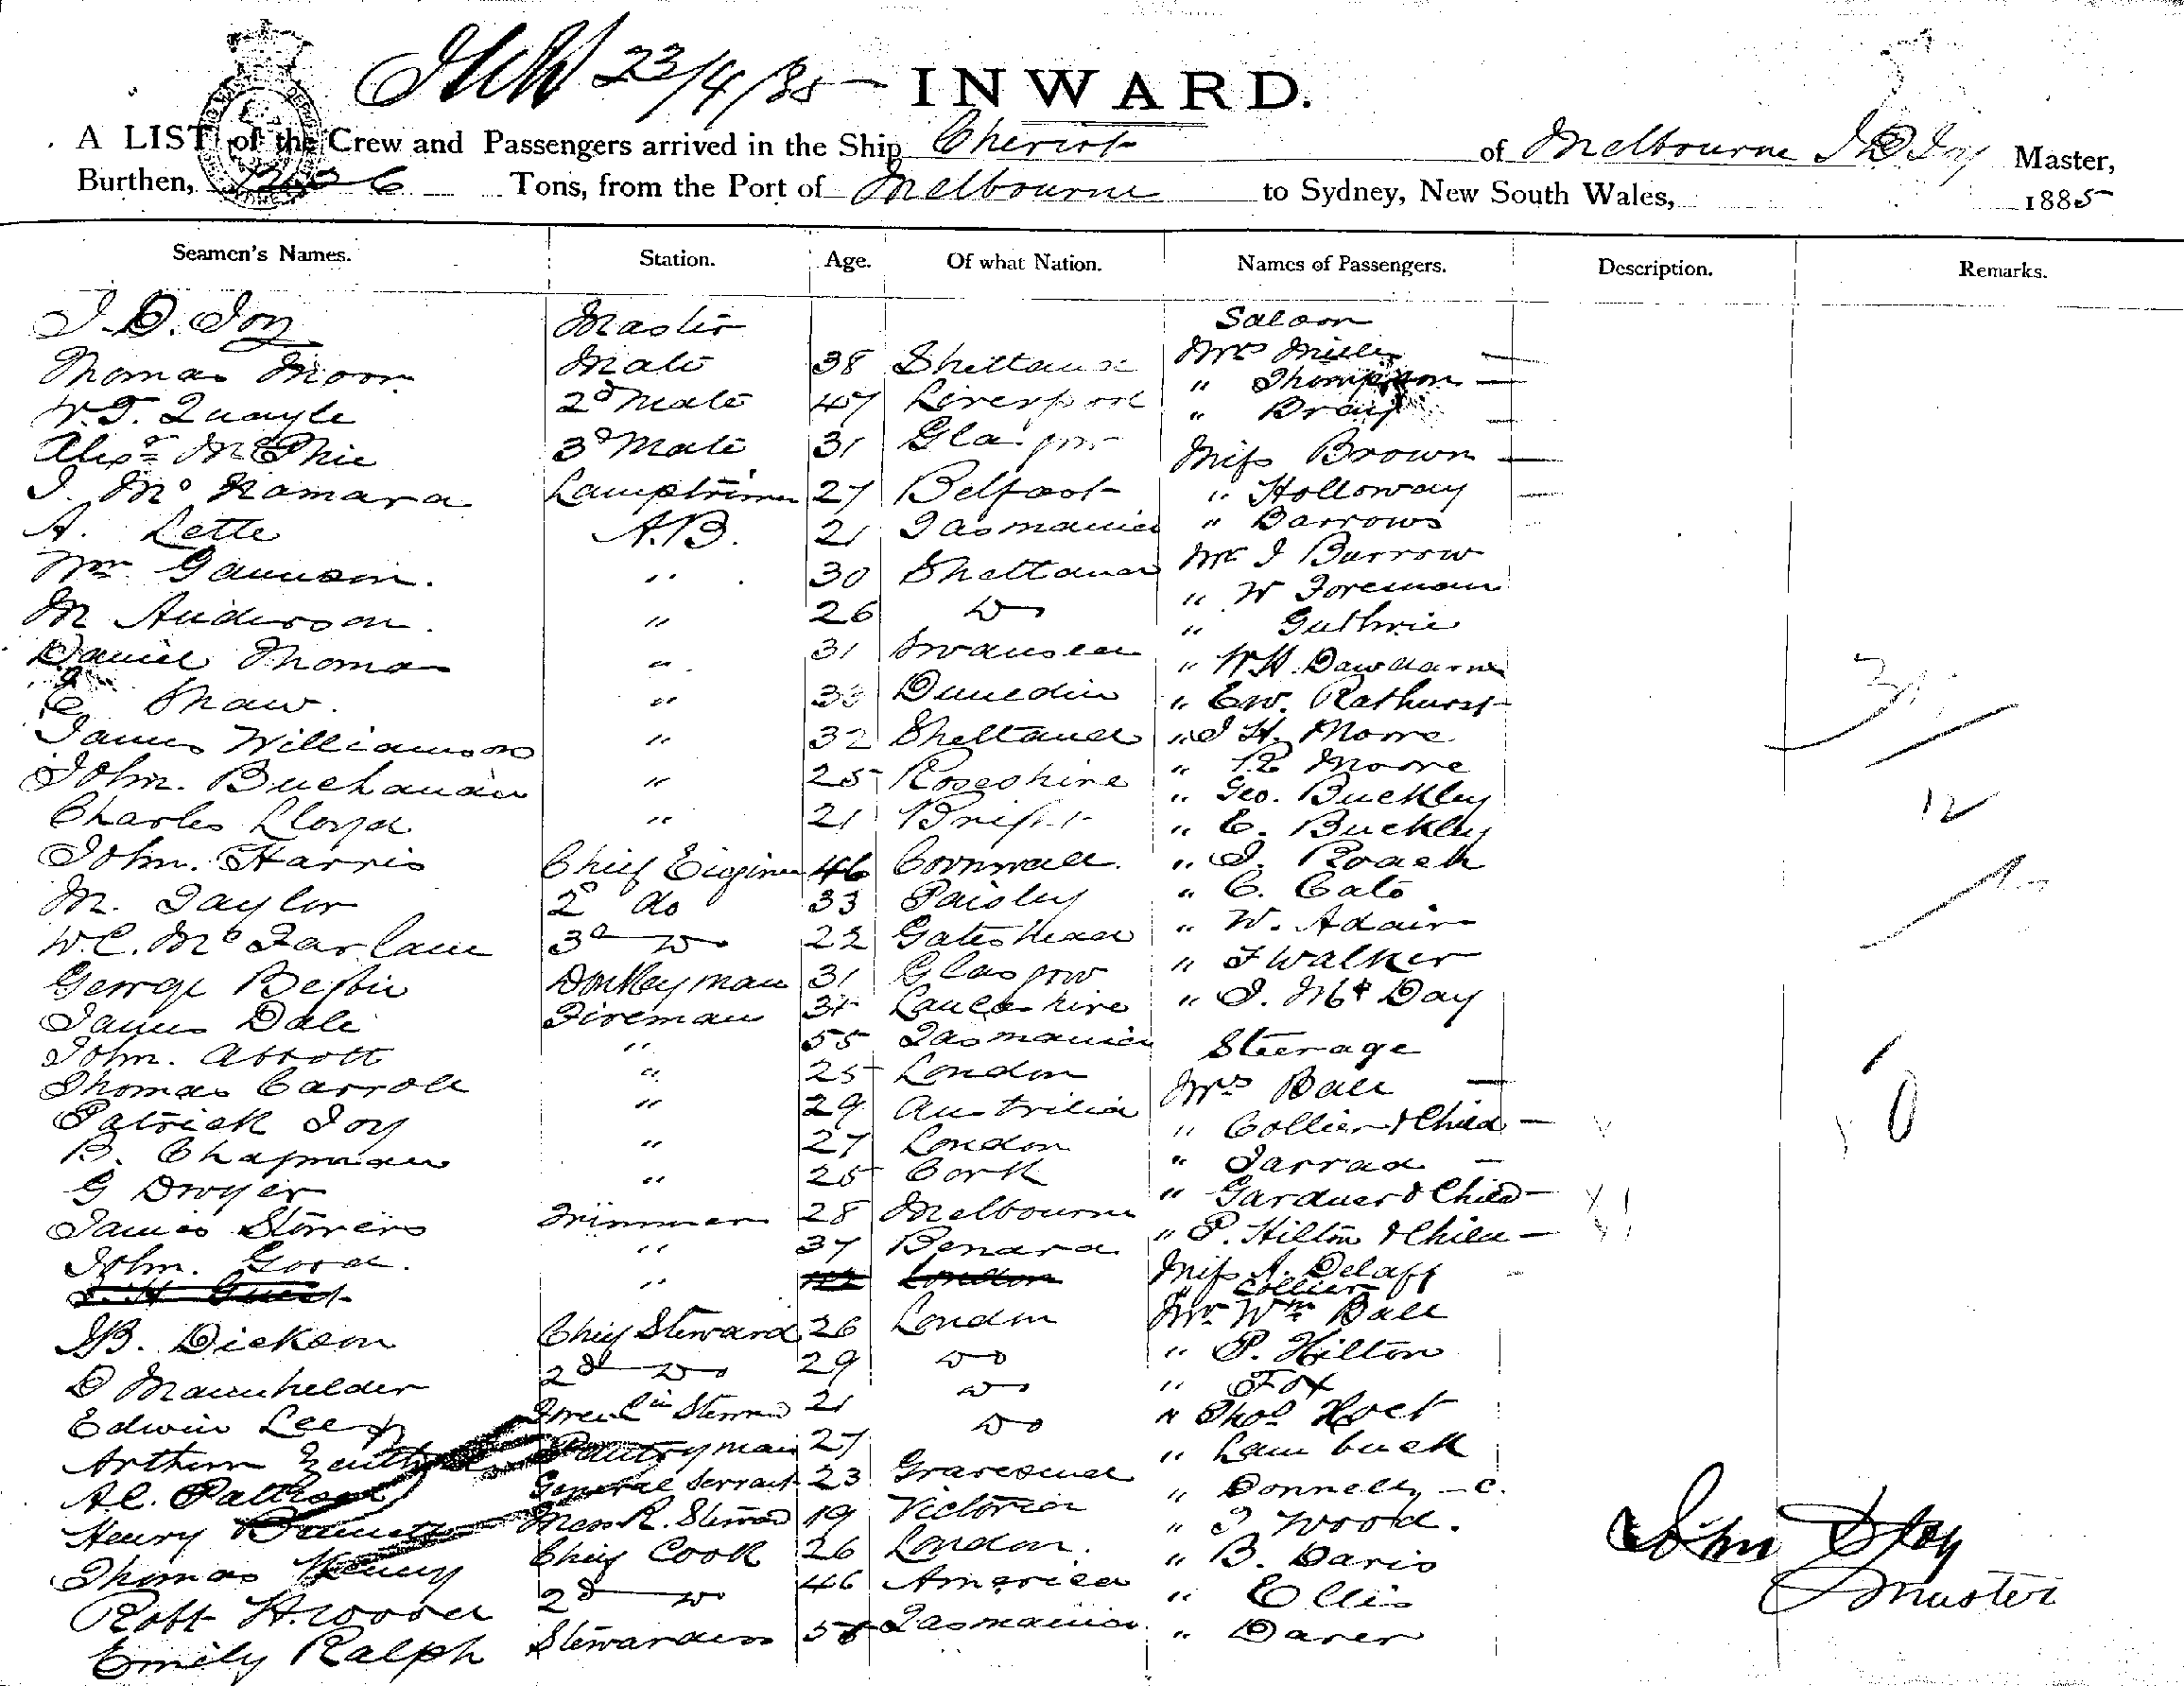 23/4/85 — INWARD.
A LIST of the Crew and Passengers arrived in the Ship Cheviot of Melbourne J D Joy Master,
Burthen, Tons, from the Port of Melbourne to Sydney, New South Wales, 1885
Seamen's Names. Station. Age. Of what Nation. Names of Passengers. Description. Remarks.
J. D. Joy Master Saloon
Thomas Moor Mate 38 Shetland Mrs Miller —
W. T. Quayle 2d Mate 47 Liverpool " Thompson —
Alexr McPhie 3d Mate 31 Glasgow " Bray —
J. McNamara Lamptrimmer 27 Belfast Miss Brown —
A. Lette A.B. 21 Tasmania " Holloway —
Wm Gaunson. " 30 Shetland " Barrows
M Anderson. " 26 Do Mr J Burrow
Daniel Thomas " 31 Swansea " W Foreman
E Shaw. " 33 Dunedin " Guthrie
James Williamson " 32 Shetland " W H
John. Buchanan " 25 Rosshire " E W. Bathurst
Charles Lloyd " 21 " J H. Moore
John. Harris Chief Engineer 46 Cornwall. " R Moore
M. Taylor 2d do 33 Paisley " Geo. Buckley
W. C. McFarlane 3d Do 22 Gateshead " E. Buckley
George Donkeyman 31 Glasgow " J. Roach
James Dale Fireman 34 Lancashire " C. Cato
John. Abbott " 55 Tasmania " W. Adair
Thomas Carroll " 25 London " F Walker
Patrick Joy " 29 Australia " J. Day
B. Chapman " 27 London Steerage
G Dwyer " 25 Cork Mrs Ball —
James Storrers Trimmer 28 Melbourne " Collier & Child —
John. Good. " 37 " Jarrad —
J. H Guest " London " Gardner & Child —
J B. Dickson Chief Steward 26 London " P. Hilton & Child —
D Mannhelder 2d Do 29 Do Miss A. —
Edwin Lee 21 Do " Collier
Arthur Pantryman 27 Do Mr Wm Ball
A C. Pattison General Servant 23 Gravesend " P. Hilton
Henry Bennett Mess R. Steward 19 Victoria " Fox
Thomas Henry Chief Cook 26 London. " Thos Holt
Robt H. Wood 2d Do 46 America " Lambuck
Emily Ralph Stewardess 58 Tasmania. " Donnelly — c.
" J Wood.
" B. Davis
" Ellis
" Darer
12
John Joy
Master